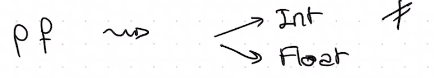 pf ⇝ → Int ≠
↘ Float